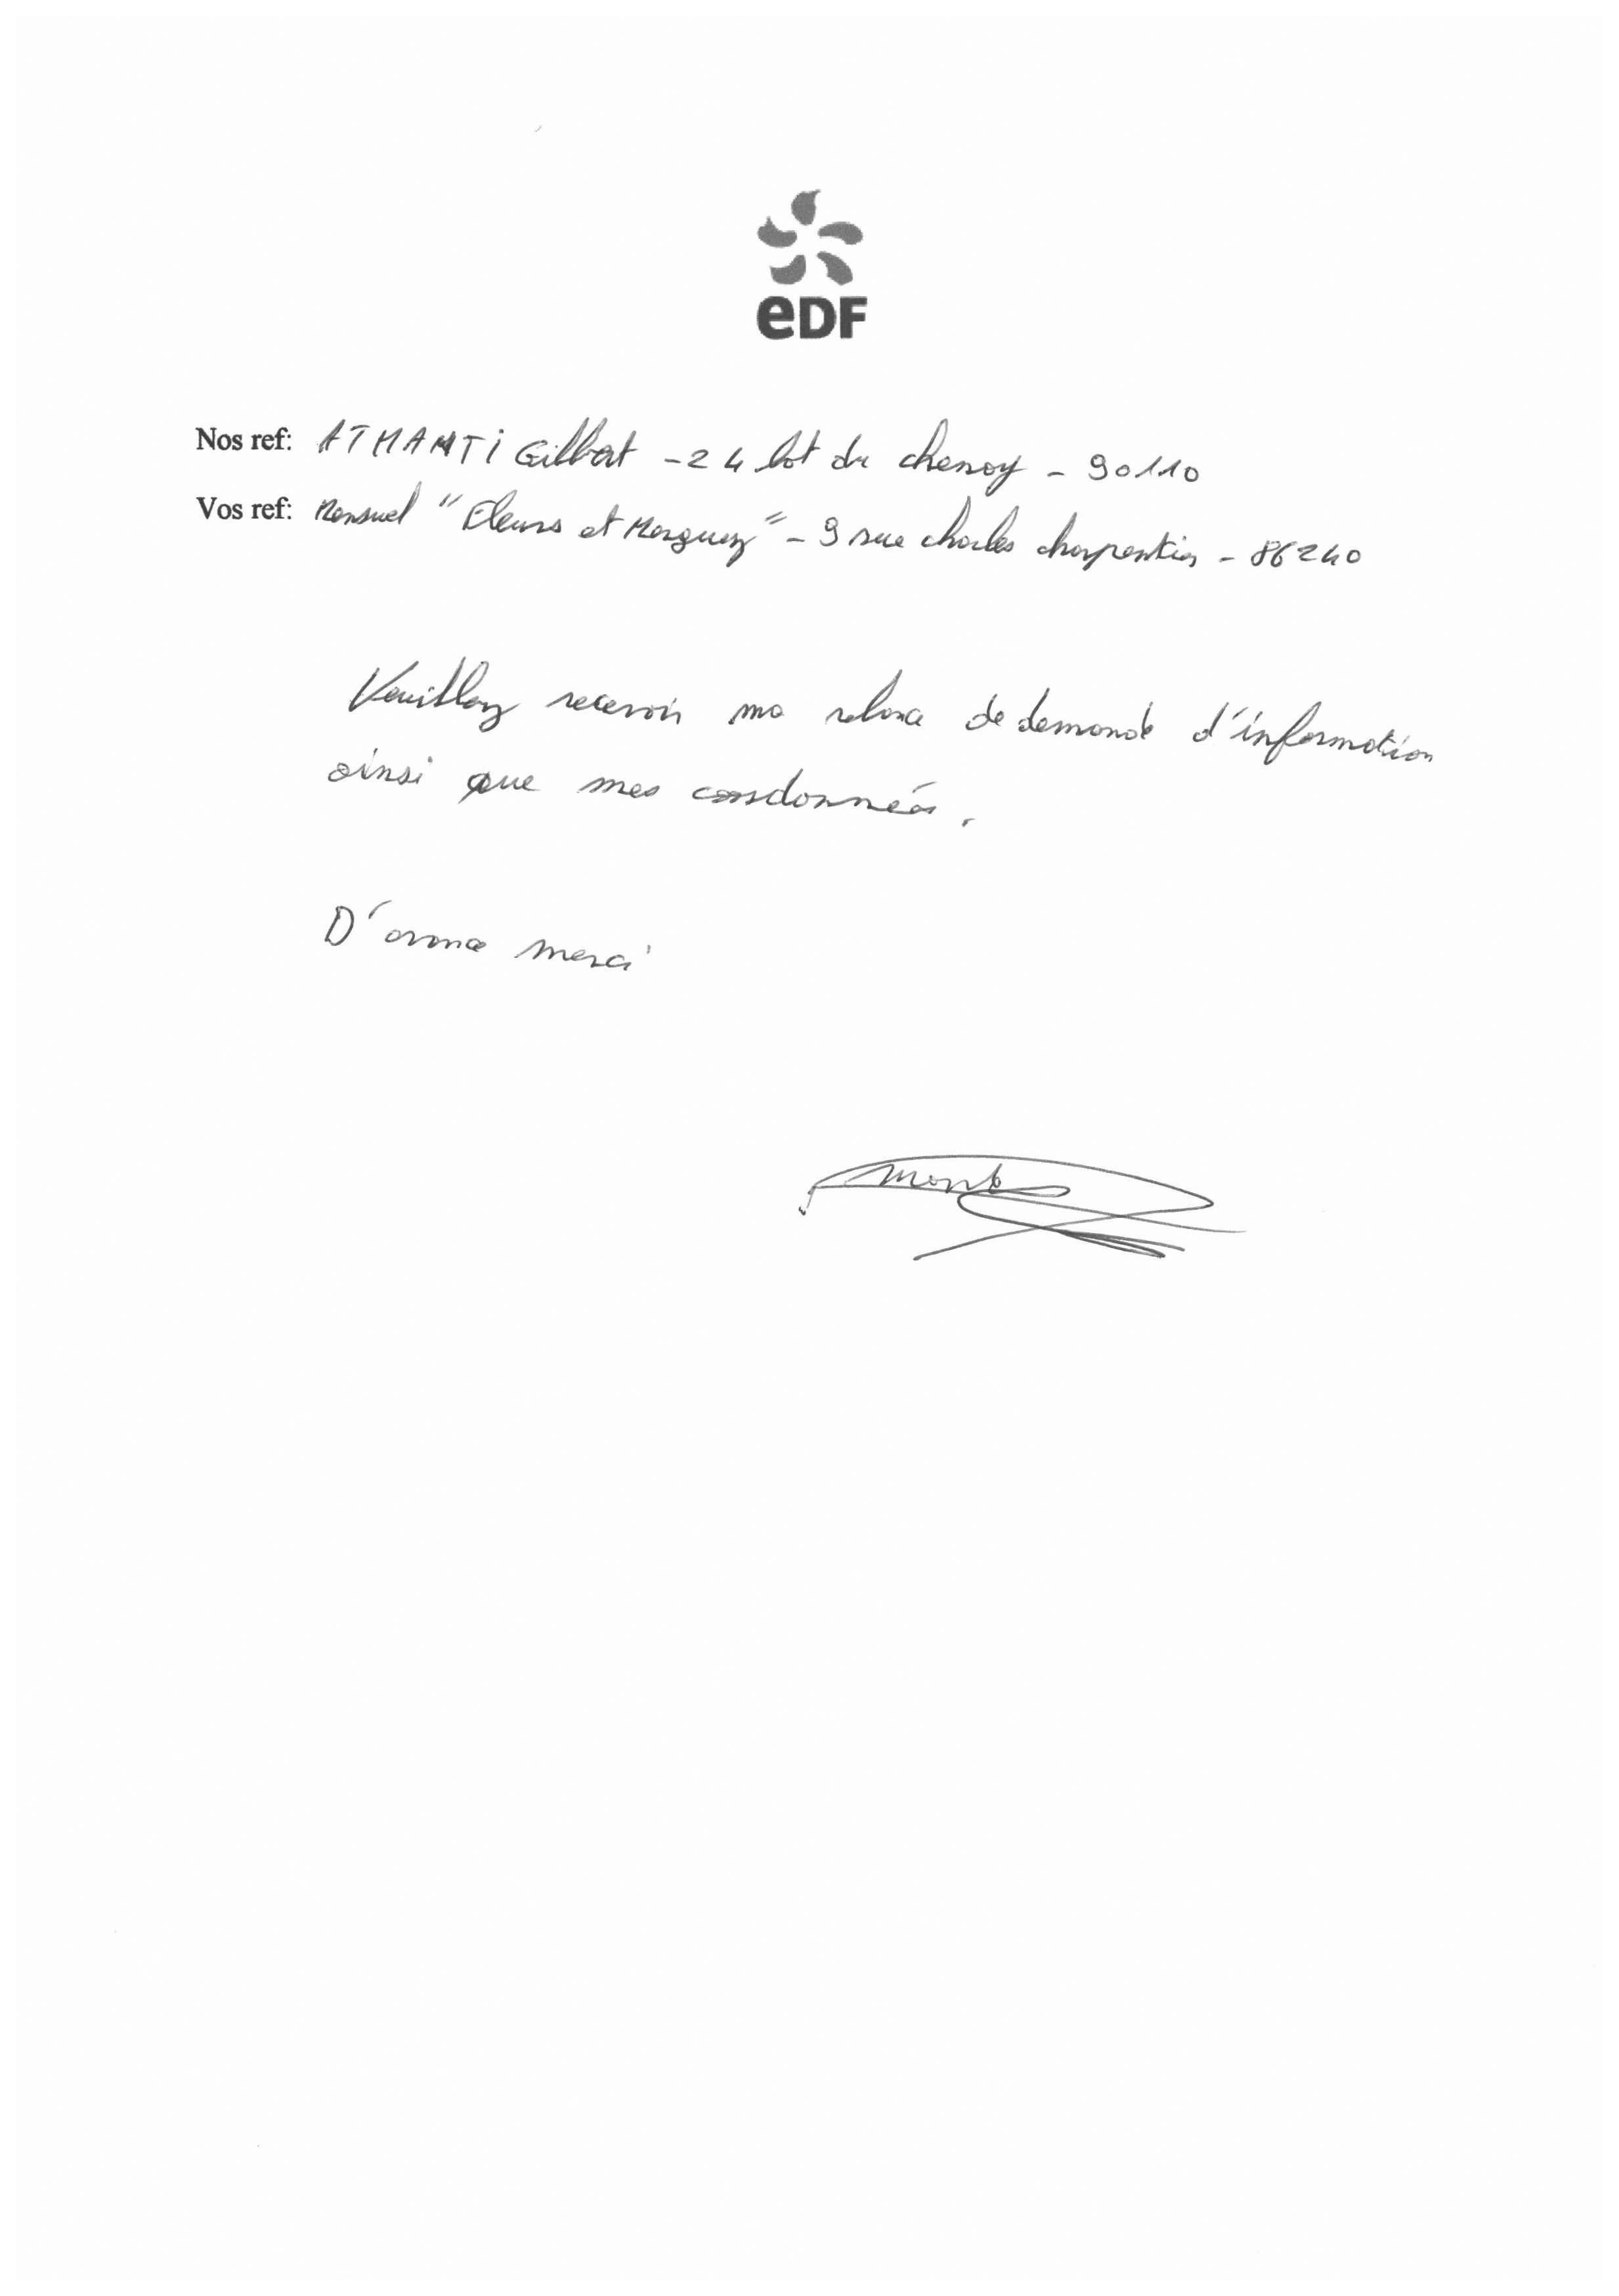 eDF
Nos ref: ATMAMTI Gilbert - 24 lot du chenoy - 90110
Vos ref: Mensuel "Fleurs et Merguez" - 9 rue charles charpentier - 86240
Veuillez recevoir ma relance de demande d'information
ainsi que mes coordonnées.
D'avance merci